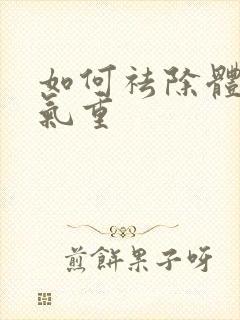 如何祛除體
氣重
煎餅果子呀